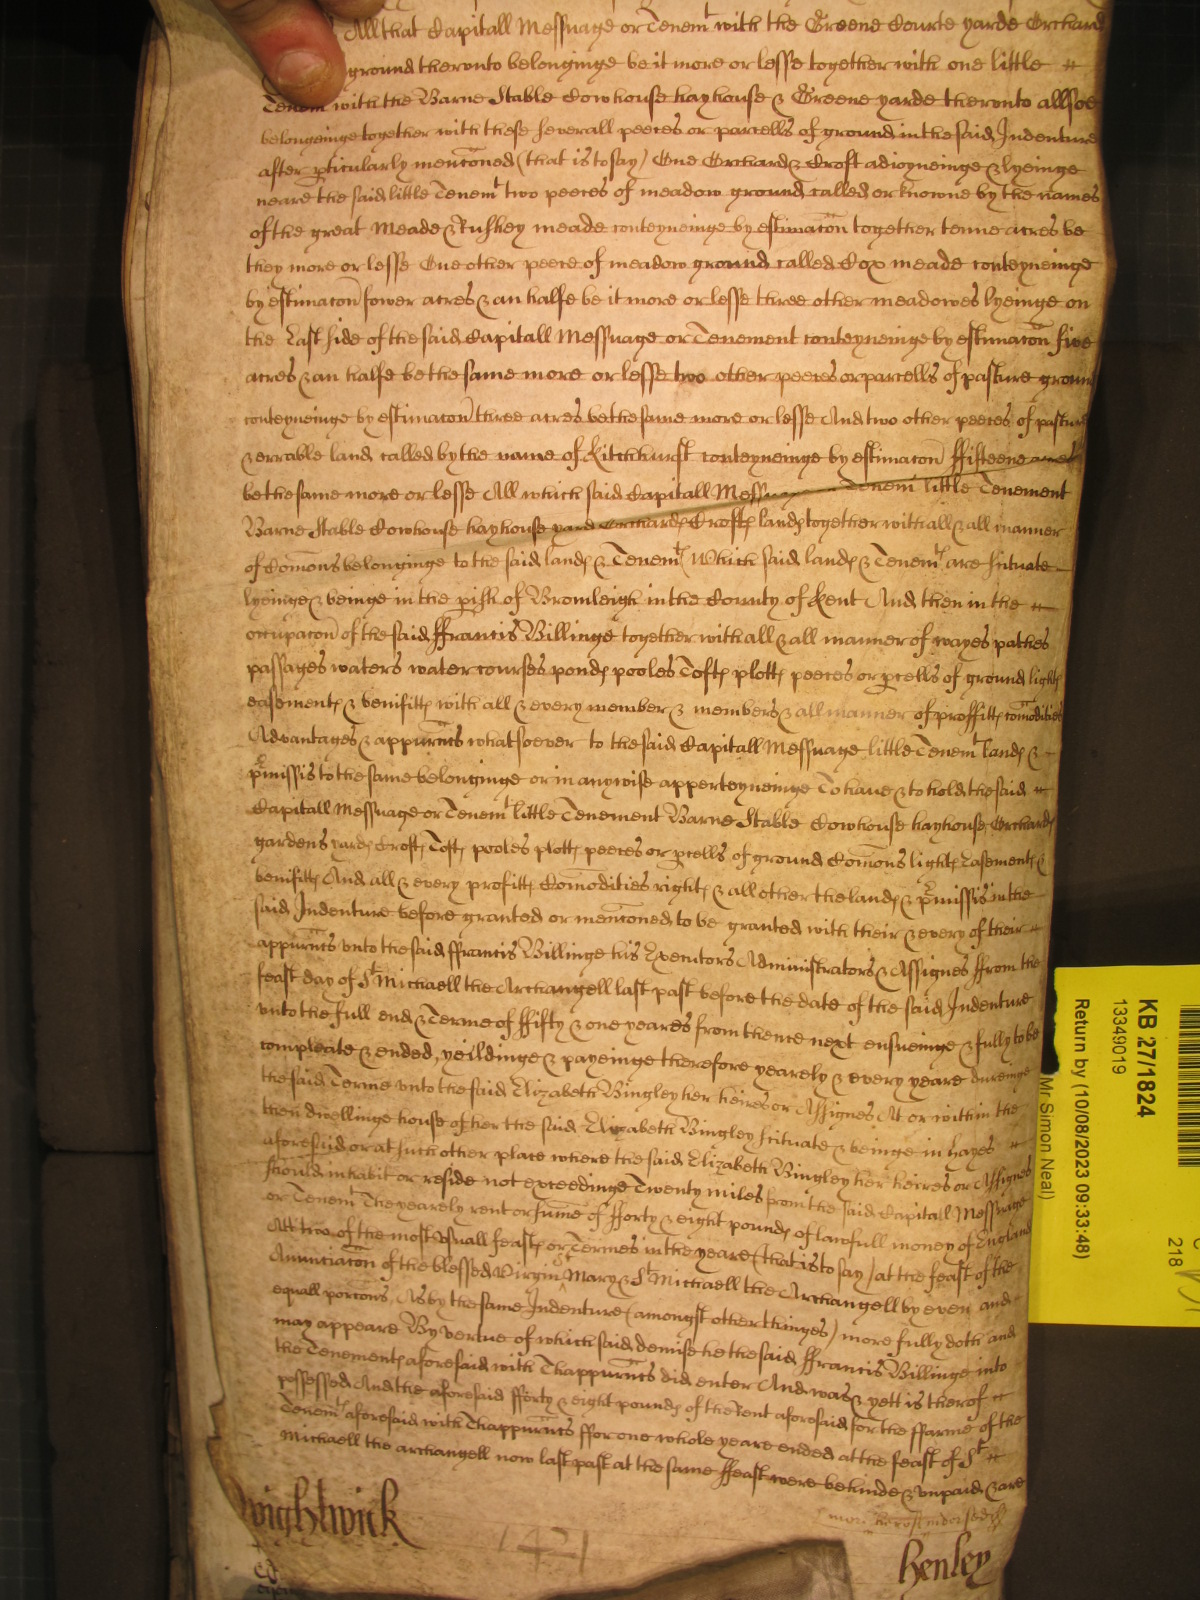 All that Capitall Messuage or Tenemt with the Greene Courte yarde Orchard
ground therunto belonginge be it more or lesse together with one little
Tenemt with the Barne Stable Cowhouse hayhouse & Greene yarde therunto allsoe
belongeinge together with these severall peeces or parcells of ground in the said Indenture
after pticularly menconed (that is to say) One Orchard & Croft adioyneinge & lyeinge
neare the said little Tenemt two peeces of meadow ground called or knowne by the names
of the great Meade & Rushey meade conteyneinge by estimacon together tenne acres be
they more or lesse One other peece of meadow ground called Cox meade conteyneinge
by estimacon fower acres & an halfe be it more or lesse three other meadowes lyeinge on
the East side of the said Capitall Messuage or Tenement conteyneinge by estimacon five
acres & an halfe be the same more or lesse two other peeces or parcells of pasture ground
conteyneinge by estimacon three acres be the same more or lesse And two other peeces of pasture
& errable land called by the name of Kitchhurst conteyneinge by estimacon ffifteene acres
be the same more or lesse All which said Capitall Mess Tenemt little Tenement
Barne Stable Cowhouse hayhouse yard Orchards Crofts lands together with all & all manner
of Comons belonginge to the said lands & Tenemts Which said lands & Tenemts are scituate
lyeinge & beinge in the pish of Bromleigh in the County of Kent And then in the
occupacon of the said ffrancis Billinge together with all & all manner of wayes pathes
passages waters water courses ponds pooles Tofts plotts peeces or pcells of ground lights
easements & benifitts with all & every member & members & all manner of proffitts comodities
Advantages & appurnts whatsoever to the said Capitall Messuage little Tenemt lands &
pmissis to the same belonginge or in anywise apperteyneinge To have & to hold the said
Capitall Messuage or Tenemt little Tenement Barne Stable Cowhouse hayhouse Orchards
gardens yards Crofts Tofts pooles plotts peeces or pcells of ground Comons lights Easements &
benifitts And all & every profitts Comodities rights & all other the lands & pmissis in the
said Indenture before granted or menconed to be granted with their & every of their
appurnts unto the said ffrancis Billinge his Executors Administrators & Assignes ffrom the
feast day of St Michaell the Archangell last past before the date of the said Indenture
unto the full end & Terme of ffifty & one yeares from thence next ensueinge & fully to be
compleate & ended, yeildinge & payeinge therefore yearely & every yeare dureinge
the said Terme unto the said Elizabeth Bingley her heires or Assignes At or within the
then dwellinge house of her the said Elizabeth Bingley scituate & beinge in hayes
aforesaid or at such other place where the said Elizabeth Bingley her heires or Assignes
should inhabit or reside not exceedinge Twenty miles from the said Capitall Messuage
or Tenemt The yearely rent or sume of fforty & eight pounds of lawfull money of England
Att two of the most usuall feasts or Termes in the yeare (that is to say) at the feast of the
Anunciacon of the blessed Virgin Mary & St Michaell the Archangell by even and
equall porcons, As by the same Indenture (amongst other thinges) more fully doth and
may appeare By vertue of which said demise he the said ffrancis Billinge into
the Tenements aforesaid with Thappurnts did enter And was & yett is therof
possessed And the aforesaid fforty & eight pounds of the rent aforesaid for the ffarme of the
Tenemts aforesaid with Thappurnts ffor one whole yeare ended at the feast of St
Michaell the archangell now last past at the same ffeast were behinde & unpaid & are
Wightwick
1421
Henley
KB 27/1824
13349019
Return by (10/08/2023 09:33:48)
Mr Simon Neal)
218